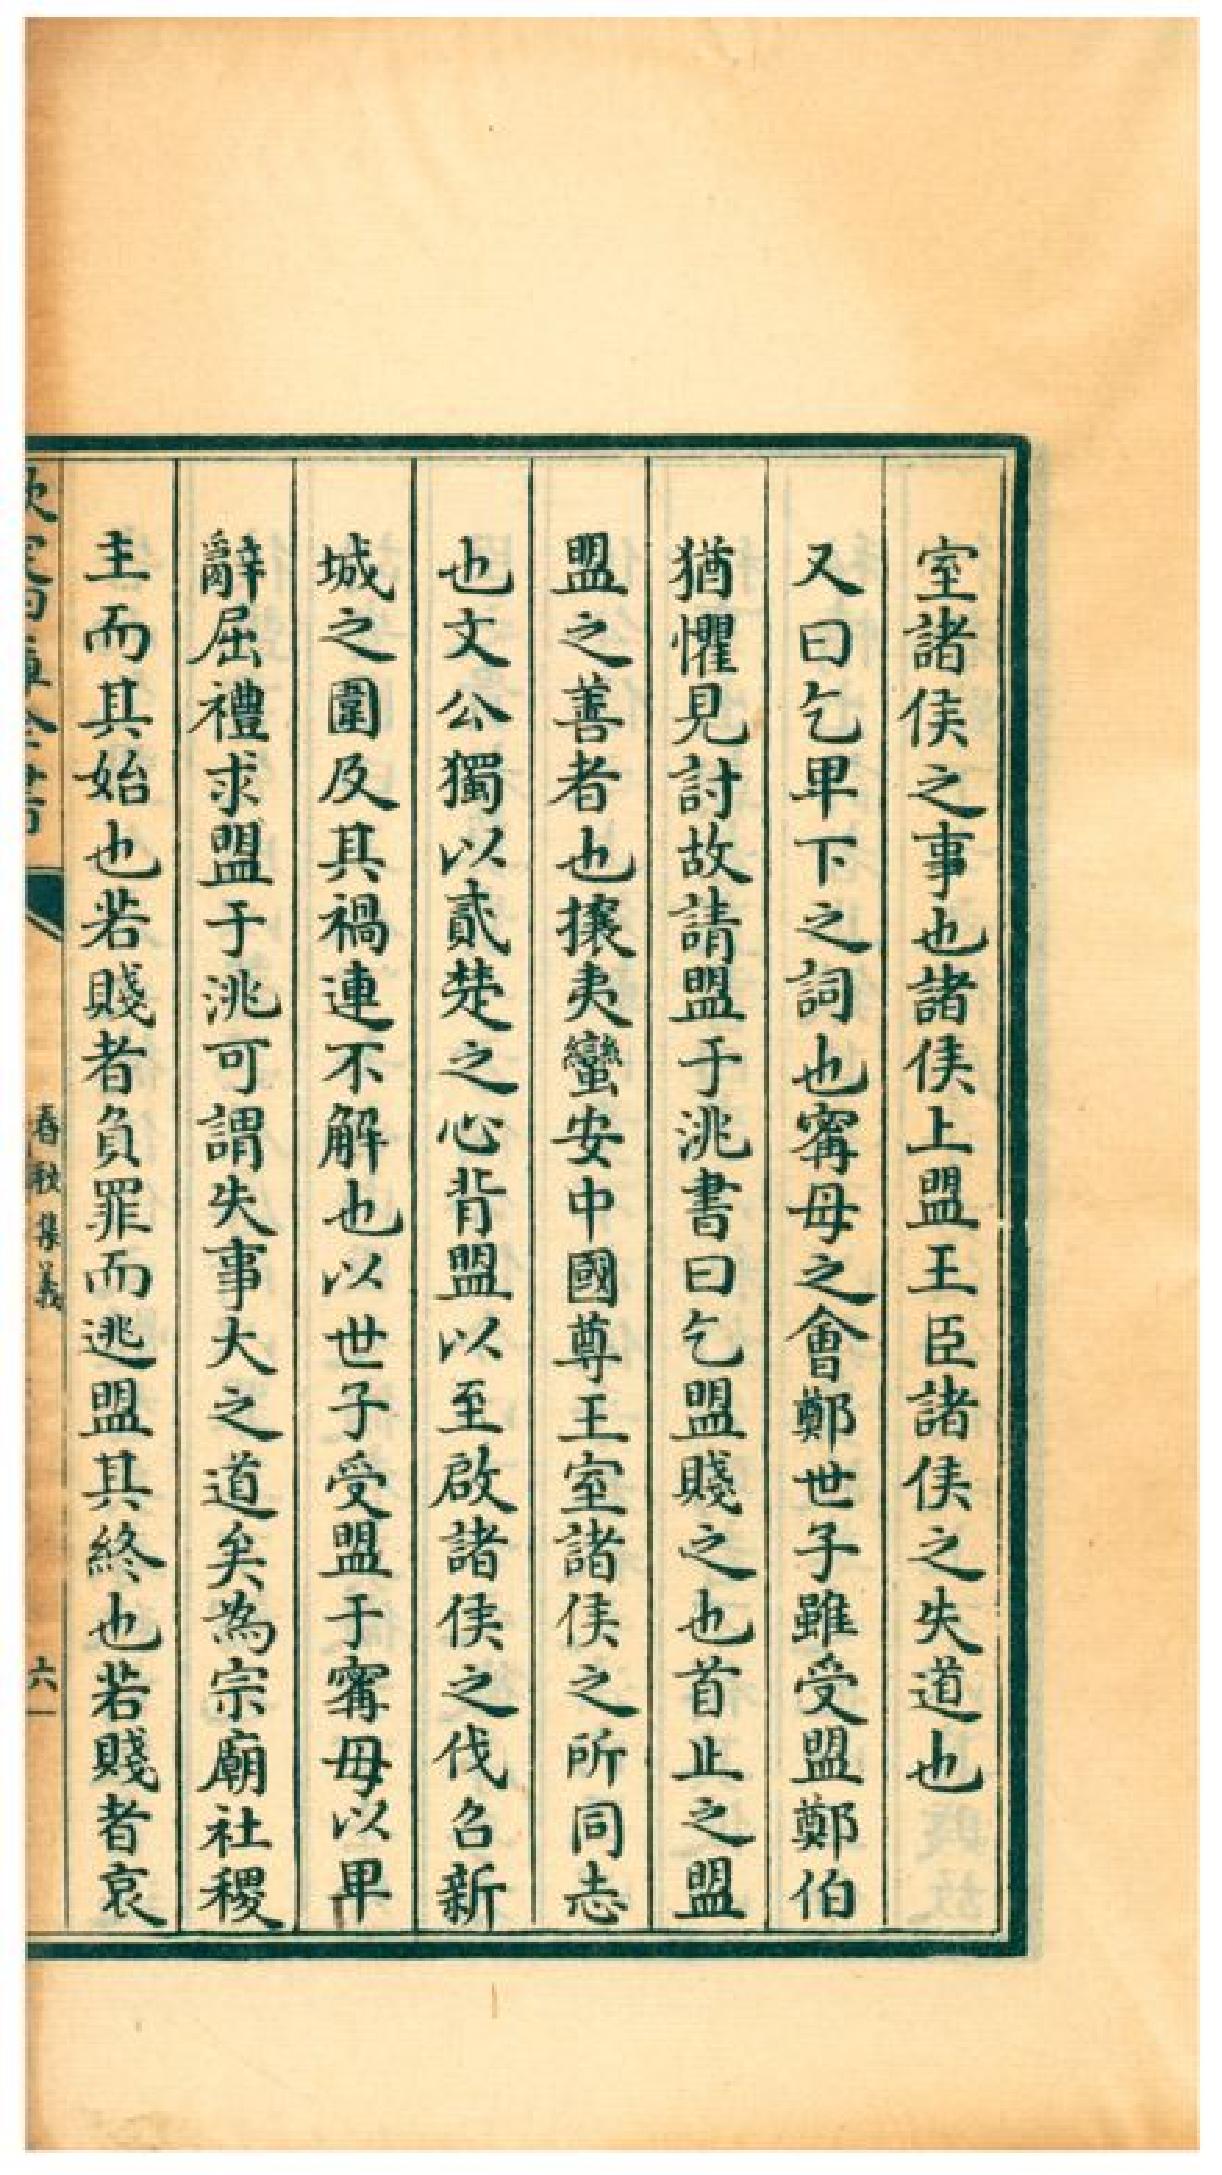 室諸侯之事也諸侯上盟王臣諸侯之失道也
又曰乞卑下之詞也寗母之會鄭世子雖受盟鄭伯
猶懼見討故請盟于洮書曰乞盟賤之也首止之盟
盟之善者也攘夷蠻安中國尊王室諸侯之所同志
也文公獨以貳楚之心背盟以至啟諸侯之伐名新
城之圍及其禍連不解也以世子受盟于寗母以卑
辭屈禮求盟于洮可謂失事大之道矣為宗廟社稷
主而其始也若賤者負罪而逃盟其終也若賤者哀
欽定四庫全書
春秋集義
六